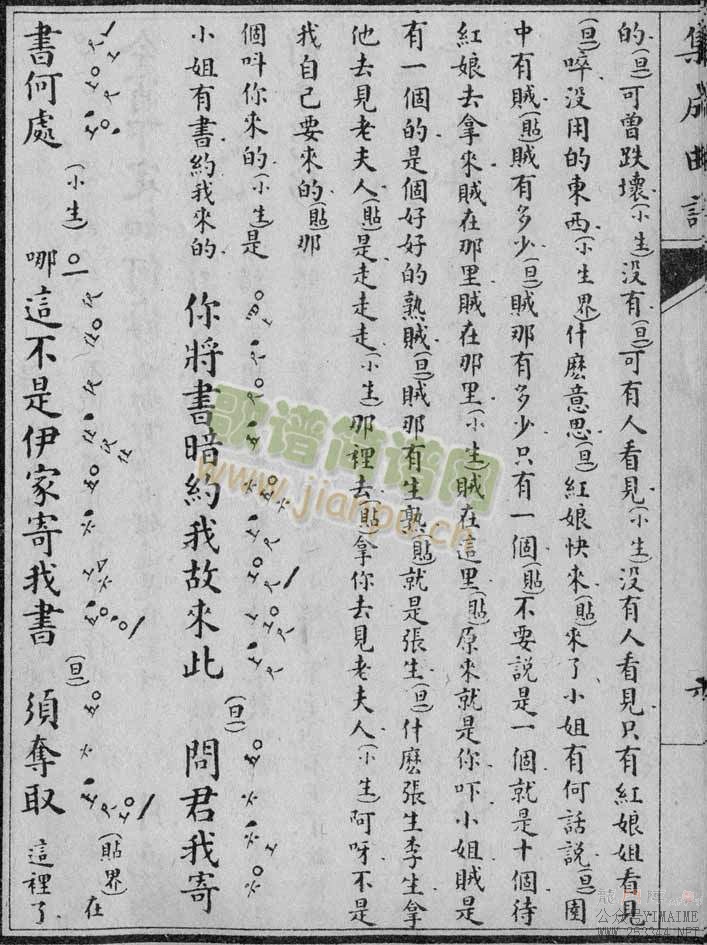 集成曲譜
的(旦)可曾跌壞(小生)没有(旦)可有人看見(小生)没有人看見只有紅娘姐看見
(旦)啐没用的東西(小生界)什麽意思(旦)紅娘快來(貼)來了小姐有何話說(旦)園
中有賊(貼)賊有多少(旦)賊那有多少只有一個(貼)不要說是一個就是十個待
紅娘去拿來賊在那里賊在那里(小生)賊在這里(貼)原來就是你吓小姐賊是
有一個的是個好好的熟賊(旦)賊那有生熟(貼)就是張生(旦)什麽張生李生拿
他去見老夫人(貼)是走走走(小生)那裡去(貼)拿你去見老夫人(小生)阿呀不是
我自己要來的(貼)那
個呌你來的(小生)是
小姐有書約我來的 你將書暗約我故來此(旦)問君我寄
書何處(小生)哪這不是伊家寄我書(旦)須奪取(貼界)在
這裡了
歌谱简谱网
www.jianpu.cn
公众号YIMAIME
WWW.253344.NET